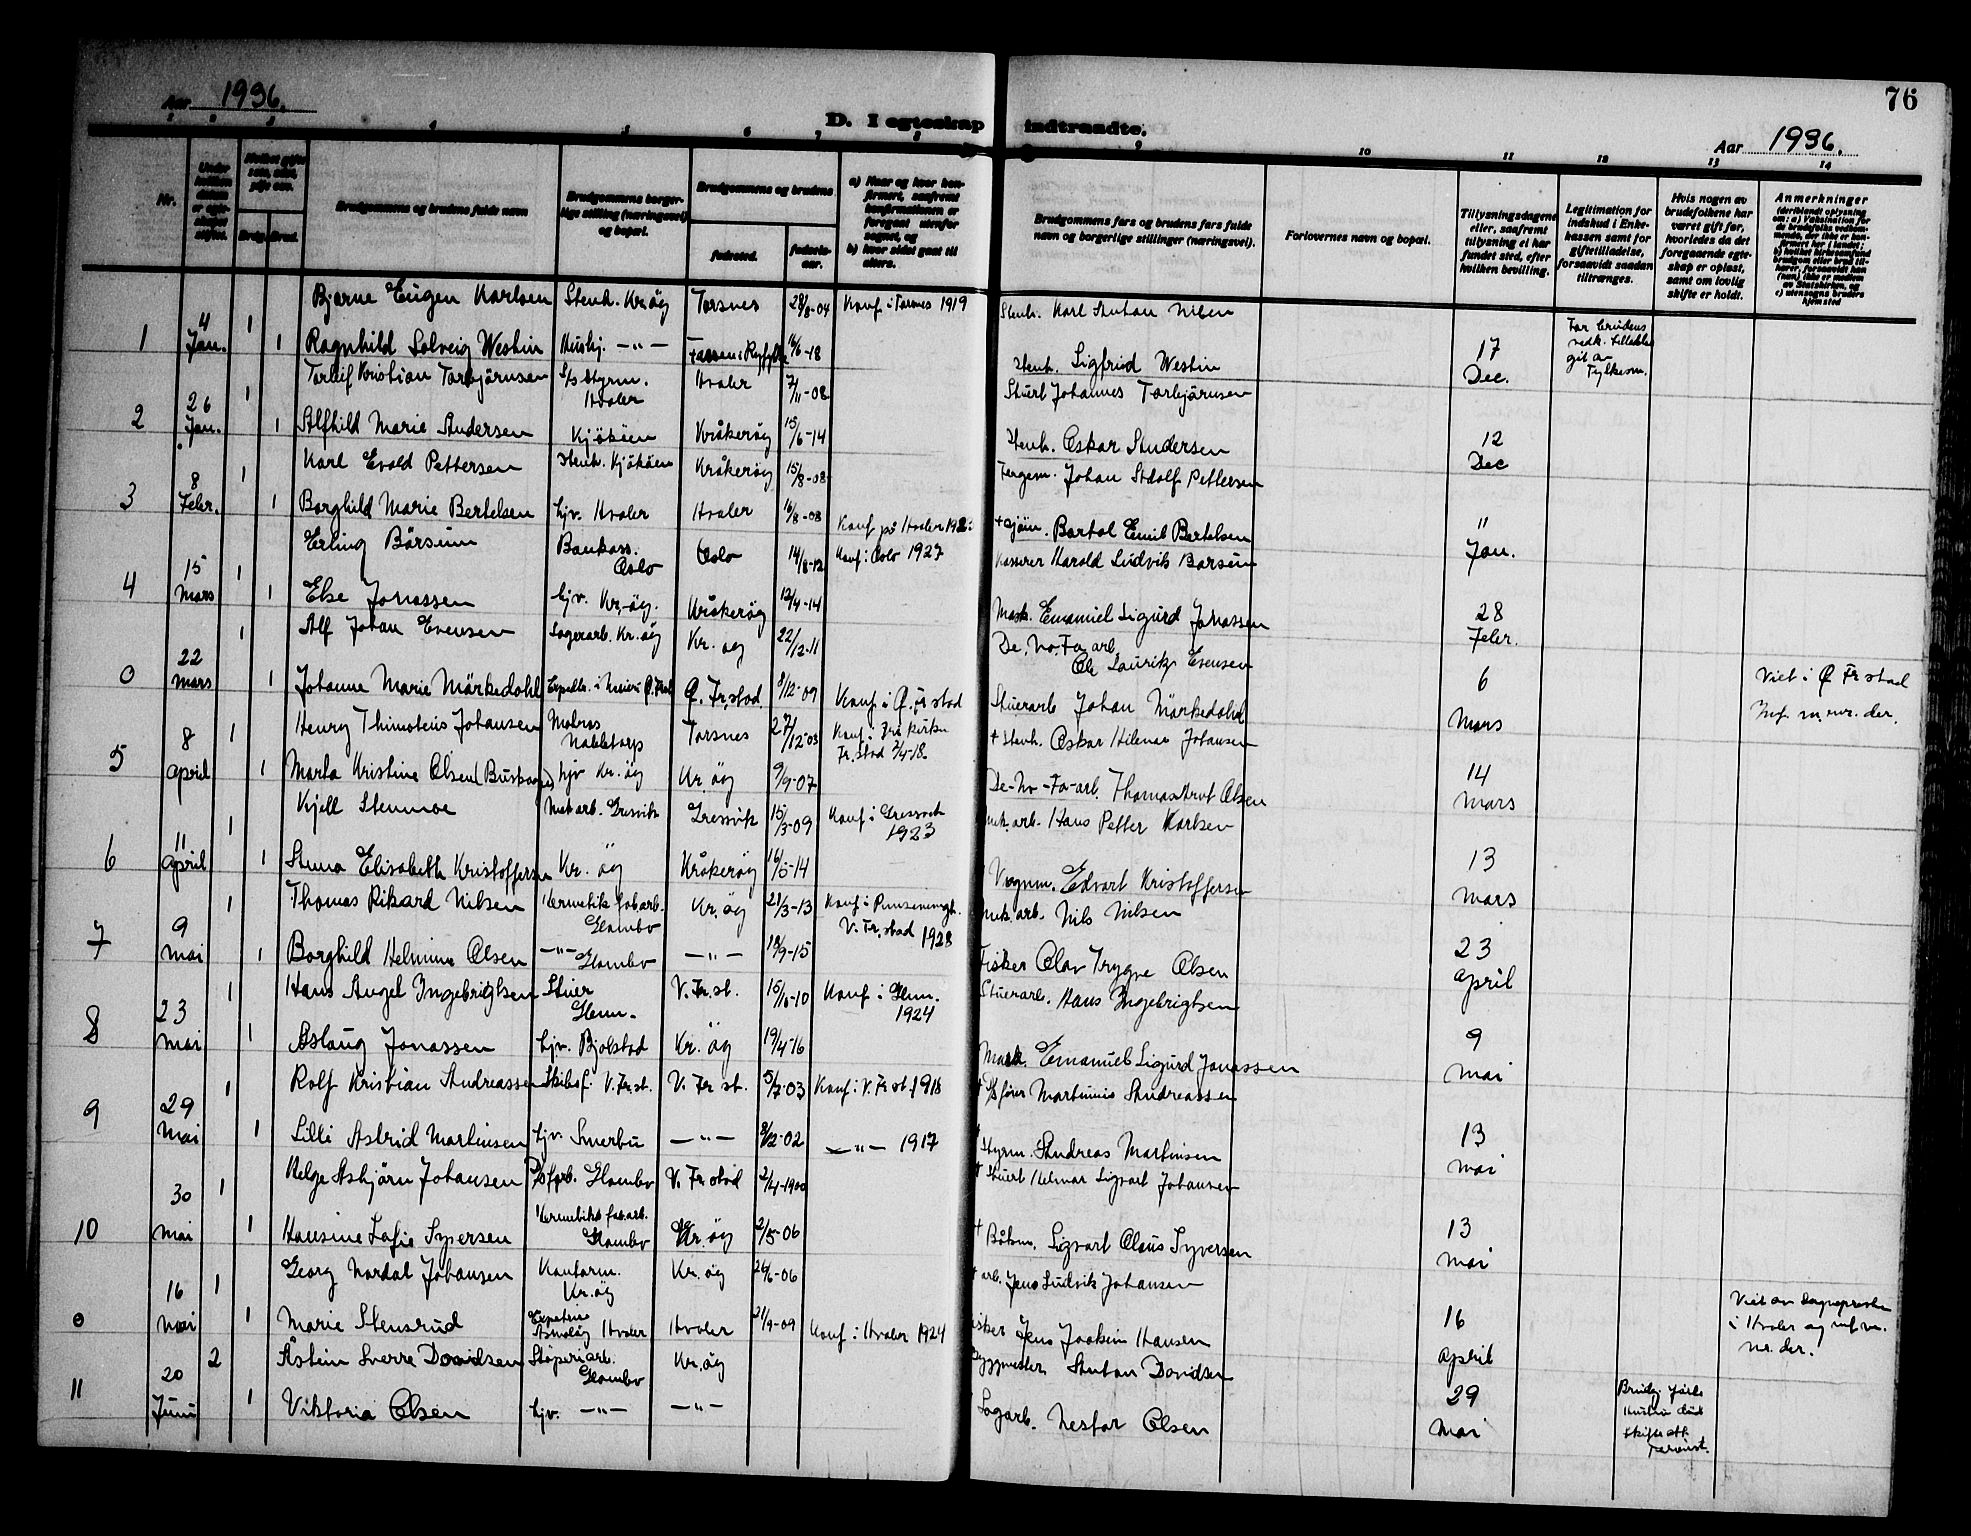 Aar 1936.
D. I egteskap
indtraadte.
76
Aar 1936.
Nr.
Brudgommens og brudens fulde navn
Brudgommens borger-
lige stilling (næringsvei)
og bopæl.
Brudgommens og brudens
fødested.
fødsels-
aar.
a) Naar og hvor kon-
firmert, saafremt
konfirmationen er
foregaat utenfor
sognet, og
b) hvor sidst gaat til
alters.
Brudgommens fars og brudens fars fulde
navn og borgerlige stillinger (næringsvei).
Forlovernes navn og bopæl.
Tillysningsdagene
eller, saafremt
tillysning ei har
fundet sted, efter
hvilken bevilling.
Legitimation for
indskud i Enke-
kassen samt for
giftetilladelse,
forsaavidt saadan
tiltrænges.
Hvis nogen av
brudefolkene har
været gift før,
hvorledes da det
foregaaende egte-
skap er opløst,
samt om lovlig
skifte er holdt.
Anmerkninger
1 4 Jan. 1 Bjarne Eugen Karlsen Stenh. Kr.øy Torsnes 28/8-04 Konf. i Torsnes 1919 Stenh. Karl Anton Nilsen
1 Ragnhild Solveig Westin Hushj. —"— 16/6-18 Stenh. Sigfrid Westin 17 Dec. For brudens vedk. tillatelse git av Fylkesm.
2 26 Jan. 1 Torleif Kristian Torbjörnsen S/s Styrm. Hvaler Hvaler 7/11-08 Stuert Johannes Torbjörnsen
1 Alfhild Marie Andersen Kjököen Kråkeröy 15/6-14 Stenh. Oskar Andersen 12 Dec
3 8 Febr. 1 Karl Evald Pettersen Stenh. Kjököen Kråkeröy 15/8-08 Fergem. Johan Adolf Pettersen
1 Borghild Marie Bertelsen hjv. Hvaler Hvaler 16/8-08 Konf. på Hvaler Bartol Emil Bertelsen 11 Jan.
4 15 Mars 1 Erling Börsum Bankass. Oslo Oslo 14/8-12 Konf. i Oslo 1927 Kasserer Harald Ludvik Börsum
1 Else Jonassen hjv. Kr.-öy. Kråkeröy 12/4-14 Mask. Emanuel Sigurd Jonassen 28 Febr.
0 22 Mars 1 Alf Johan Evensen Lagerarb. Kr.öy Kr. öy 22/12-11 De.No.Fa.arb. Ole Lauritz Evensen
1 Johanne Marie Mörkedahl Ø. Fr.stad 8/12-09 Konf. i Ø. Fr stad Stuerarb Johan Mörkedahl 6 Mars Viet i Ø Fr stad Inf. m. nr. der.
5 8 April 1 Henry Thimoteus Johansen Matros Nabbetorp Torsnes 27/12-03 Konf. i Frikirken Fr.stad + Stenh. Oskar Hilmar Johansen
1 Marta Kristine Olsen hjv Kr.öy Kr.öy 9/9-07 De-No-Fa-arb. Thomas Olsen 14 Mars
6 11 April 1 Kjell Stenmoe Mek arb. Gresvik Gressvik 15/3-09 Konf. i Gressvik 1923 Mek.arb. Hans Petter Karlsen
1 Anna Elisabeth Kristoffersen Kr. öy Kråkeröy 16/5-14 Vognm. Edvart Kristoffersen 13 Mars
7 9 Mai 1 Thomas Rikard Nilsen Hermetik fab.arb. Glombo Kr. öy 21/3-13 Konf. i V. Fr.stad 1928 Mek.arb. Nils Nilsen
1 Borghild Helmine Olsen —"— Glombo —"— 18/9-15 Fisker Olav Trygve Olsen 23 April
8 23 Mai 1 Hans Angel Ingebrigtsen Stuer Glem. V. Fr.st. Konf. i Glem. 1924 Stuerarb. Hans Ingebrigtsen
1 Aslaug Jonassen hjv. Bjölstad Kr. öy 19/4-16 Mask. Emanuel Sigurd Jonassen 9 Mai
9 29 Mai 1 Rolf Kristian Andreassen Skibsf. V. Fr.st. V. Fr st. 5/7-03 Konf: V. Fr st. 1918 + S/s förer Martinius Andreassen
1 Lilli Astrid Martinsen hjv. Smerbu —"— 8/12-02 —"— 1917 Styrm. Andreas Martinsen 13 Mai
10 30 Mai 1 Helge Asbjörn Johansen Glombo V. Fr.stad 2/4-1900 + Stuert Helmer Sigvart Johansen
1 Hansine Sofie Syversen Hermetikk fab.arb. Glombo Kr. öy 2/5-06 + Båtsm. Sigvart Olaus Syversen 13 Mai
0 16 Mai 1 Georg Nordal Johansen Kontorm. Kr.öy Kr. öy 26/6-06 + arb. Jens Ludvik Johansen
1 Marie Stensrud Hvaler Hvaler 21/9-09 Konf: Hvaler 1924 Fisker Jens Joakim Hansen 16 April Viet av Sogneprsten i Hvaler og inf m. nr. der.
11 20 Juni 2 Åstein Sverre Davidsen Stöperiarb. Glombo Kr.öy Byggmester Anton Davidsen
1 Viktoria Olsen hjv. —"— —"— Sagarb. Nestor Olsen 29 Mai Brudg. förste Hustru död skifte att.